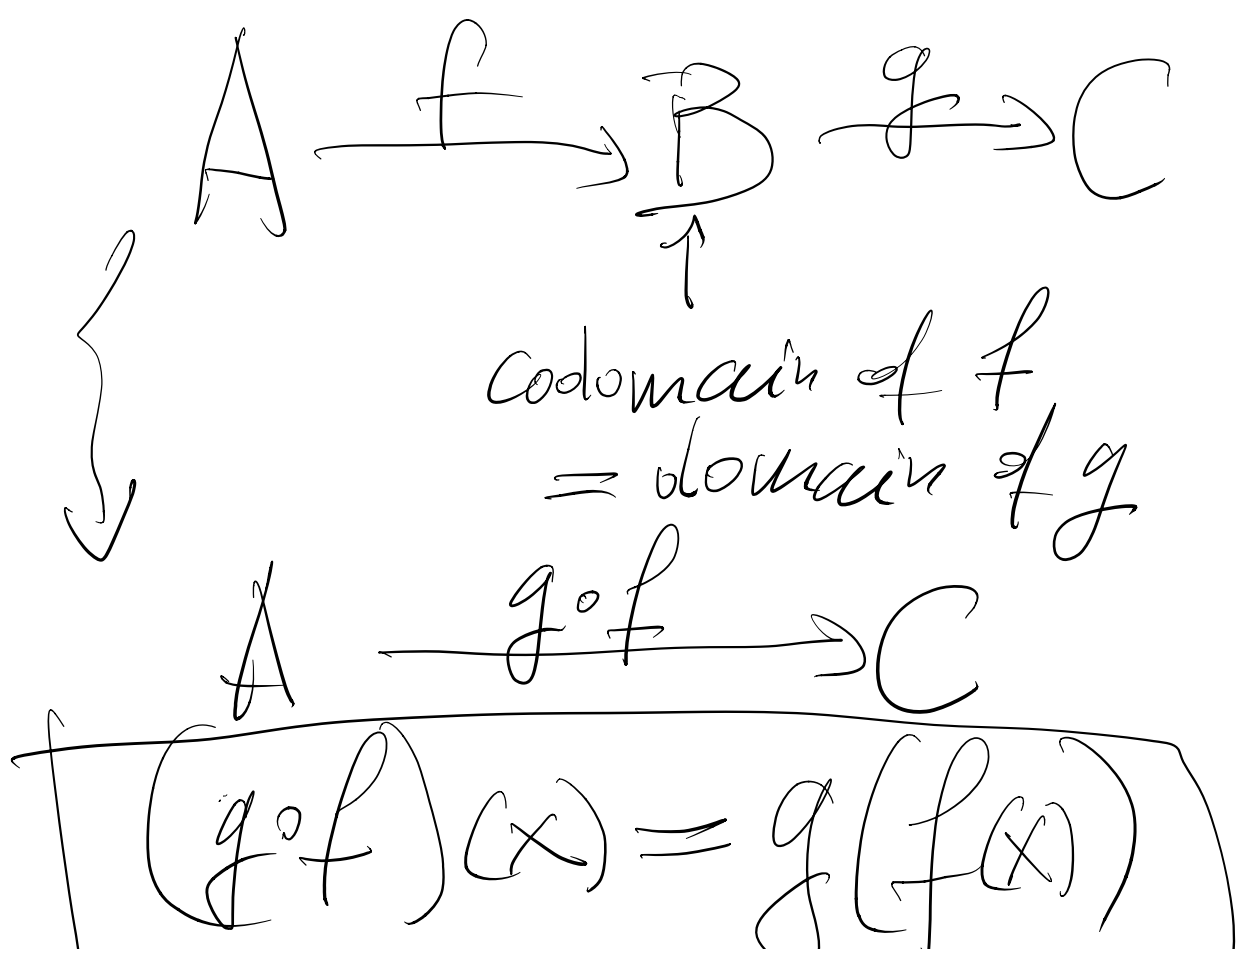 A f B g C
codomain of f
= domain of g
A g∘f C
(g∘f)(x) = g(f(x))